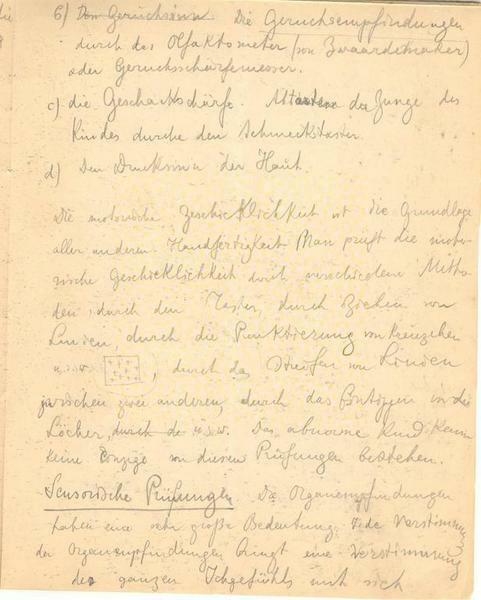 b) Den Geruchsinn. Die Geruchsempfindungen
durch das Olfaktometer (von Zwaardemaker)
oder Geruchsschärfemesser.
c) die Geschmackschärfe. Abtasten der Zunge des
Kindes durch den Schmecktaster
d) Den Drucksinn der Haut.
Die motorische Geschicklichkeit ist die Grundlage
aller anderen Handfertigkeit. Man prüft die moto-
rische Geschicklichkeit durch verschiedene Metho-
den; durch den Taster, durch Ziehen von
Linien, durch die Punktierung von Kreuzchen
u.s.w. , durch das Streifen von Linien
zwischen zwei anderen, durch das in die
Löcher, durch die u.s.w. Das abnorme Kind kann
keine einzige von diesen Prüfungen bestehen.
Sensorische Prüfungen. Die Organempfindungen
haben eine sehr große Bedeutung. Jede Verstimmung
der Organempfindungen bringt eine Verstimmung
des ganzen Ichgefühls mit sich